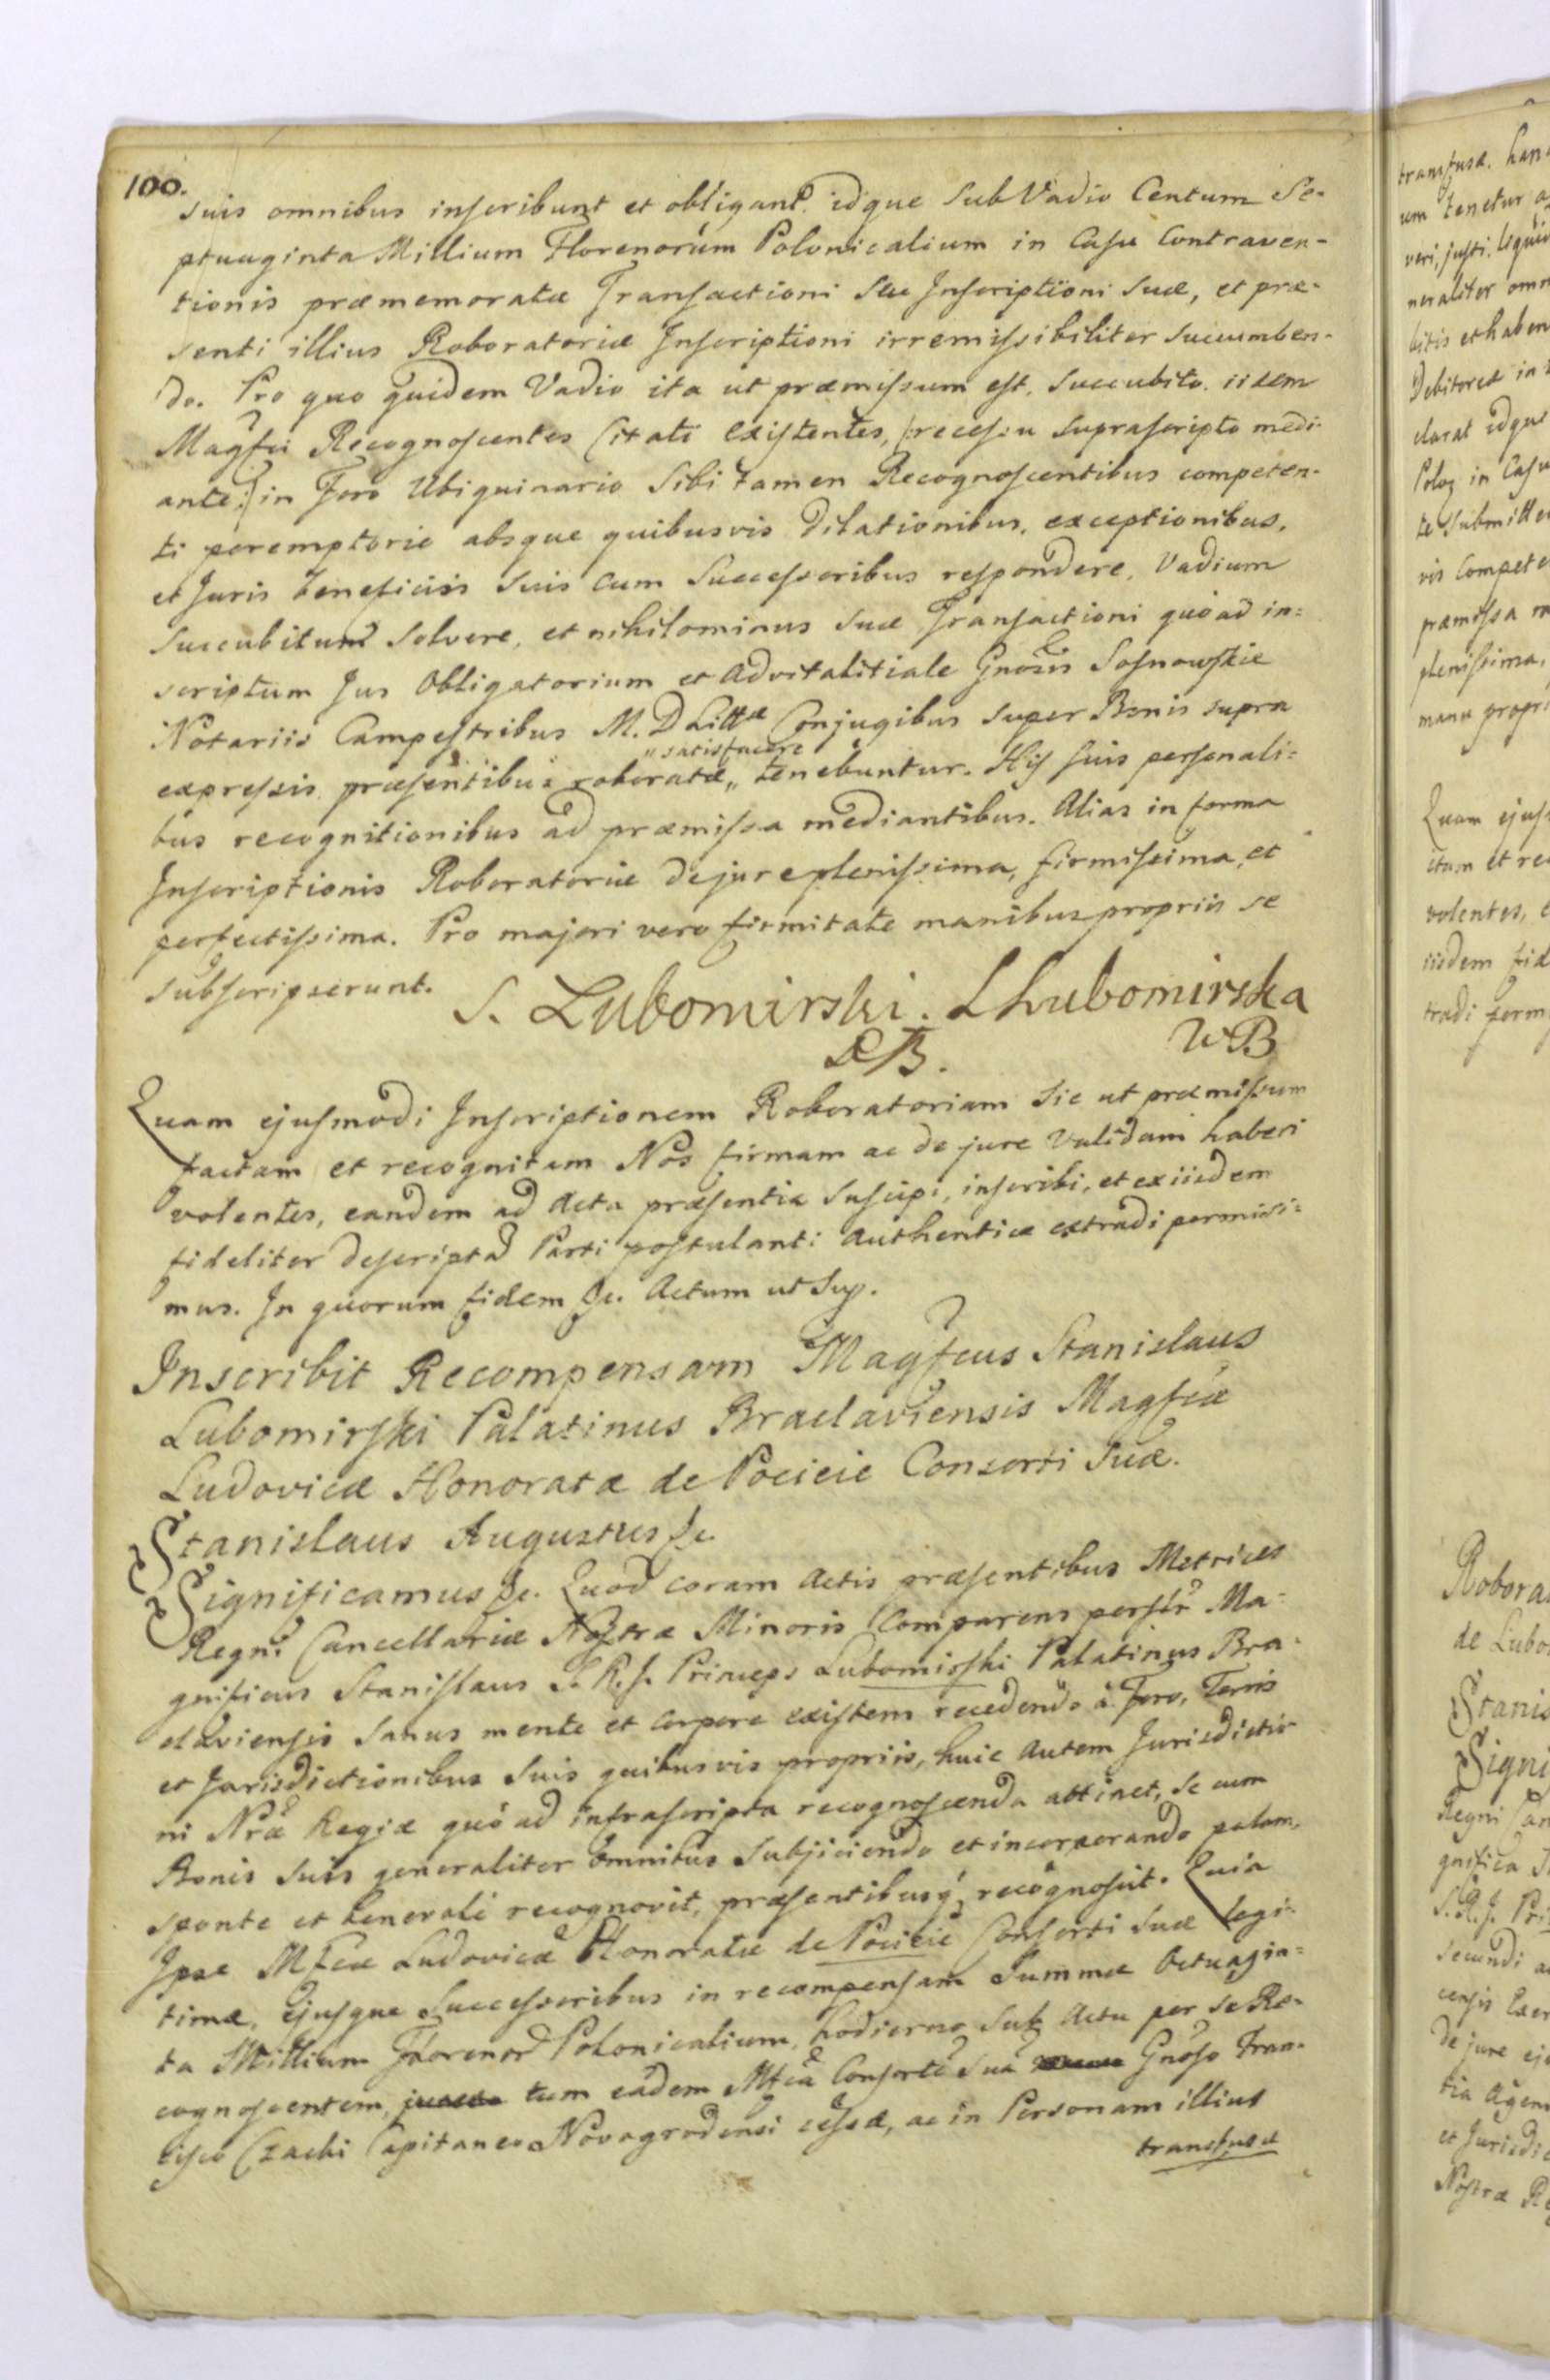 100.
suis omnibus inscribunt et obligant. idque sub Vadio Centum Se-
ptuaginta Millium Florenorum Polonicalium in Casu Contraven-
tionis præmemoratæ Transactioni seu Inscriptioni suæ, et præ-
senti illius Roboratoriæ Inscriptioni irremissibiliter succumben-
do. Pro quo quidem Vadio ita ut præmissum est, succubito iidem
Magfci Recognoscentes Citati existentes, (recessu suprascripto medi-
ante) in Foro Ubiquinario sibi tamen Recognoscentibus competen-
ti peremptorie absque quibusvis dilationibus, exceptionibus,
et Juris beneficiis suis cum Successoribus respondere, Vadium
succubitum solvere, et nihilominus suæ Transactioni quoad in-
scriptum Jus Obligatorium et Advitalitiale Gnosis Sosnowskie
Notariis Campestribus M. D. Littæ Conjugibus super Bonis supra
expressis præsentibus roboratæ „satisfacere„ tenebuntur. His suis personali-
bus recognitionibus ad præmissa mediantibus. Alias in forma
Inscriptionis Roboratoriæ de jure plenissima, firmissima, et
perfectissima. Pro majori vero firmitate manibus propriis se
subscripserunt.
S. Lubomirski. Lhubomirska
WB
Quam ejusmodi Inscriptionem Roboratoriam sic ut præmissum
factam et recognitam Nos firmam ac de jure validam haberi
volentes, eandem ad Acta præsentia suscipi, inscribi, et ex iisdem
fideliter descripta Parti postulanti authentice extradi permisi-
mus. In quorum fidem &c. Actum ut Sup.
Inscribit Recompensam Magfcus Stanislaus
Lubomirski Palatinus Braclaviensis Magfcæ
Ludovicæ Honoratæ de Pocieie Consorti suæ.
Stanislaus Augustus &c.
Significamus &c. Quod coram Actis præsentibus Metrices
Regni Cancellariæ Nostræ Minoris Comparens persltr Ma-
gnificus Stanislaus S. R. J. Princeps Lubomirski Palatinus Bra-
claviensis sanus mente et corpore existens recedendo à Foro, Terris
et Jurisdictionibus suis quibusvis propriis, huic autem Jurisdictio
ni Nræ Regiæ quò ad infrascripta recognoscenda attinet, se cum
Bonis suis generaliter omnibus subjiciendo et incorporando palam,
sponte et benevolé recognovit, præsentibusq recognoscit. Quia
Ipse Mfcæ Ludovicæ Honoratæ de Pocieie Consorti suæ legi-
timæ, ejusque Successoribus in recompensam Summæ Octuagin-
ta Millium Florenor Polonicalium, hodierno sub Actu per se Re-
cognoscentem, tum eâdem Mfcâ Consorte suâ Gnoso Fran-
cisco Czacki Capitaneo Novogrodensi cessæ, ac in Personam illius
transfusæ
transfusæ.
um tenetur
veri, justi,
neraliter omn
bitis et haben
Debitores in
clarat idque
Poloz in Casu
te submitte
vis compete
præmissa m
plenissima,
manu propri
Quam ejus
ctam et re
volentes, e
iisdem fid
tradi perm
Robora
de Lubo
Stanis
Signi
Regni Can
gnifica
S. R. J. Pri
secundi
censis Exer
de jure eje
tia Agen
et Jurisdic
Nostræ Re